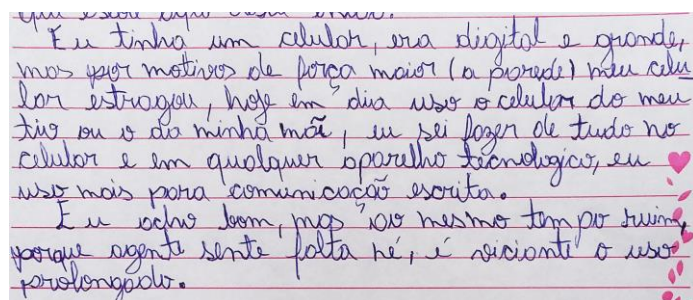 Eu tinha um celular, era digital e grande,
mas por motivos de força maior (a parede) meu celu
lar estragou, hoje em dia uso o celular do meu
tio ou o da minha mãe, eu sei fazer de tudo no
celular e em qualquer aparelho tecnologico, eu
uso mais para comunicação escrita.
Eu acho bom, mas ao mesmo tempo ruim,
porque agente sente falta né, é viciante o uso
prolongado.